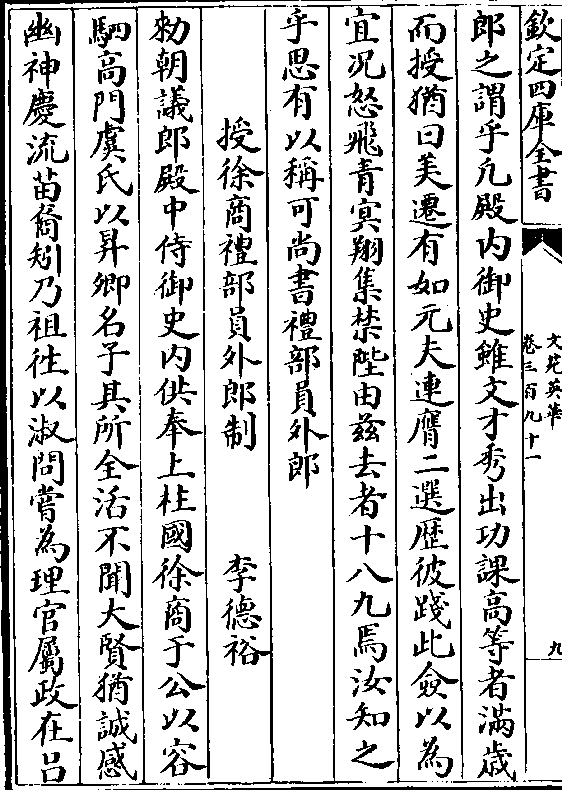 欽定四庫全書
文苑英華
卷三百九十一
九
郎之謂乎凡殿内御史雖文才秀出功課高等者滿歳
而授猶曰美遷有如元夫連膺二選歴彼踐此僉以為
宜况怒飛青㝠翔集禁陛由兹去者十八九焉汝知之
乎思有以稱可尚書禮部員外郎
授徐商禮部員外郎制 李德裕
勑朝議郎殿中侍御史内供奉上柱國徐商于公以容
駟髙門虞氏以昇卿名子其所全活不聞大賢猶誠感
幽神慶流苗裔矧乃祖徃以淑問嘗為理官屬政在吕